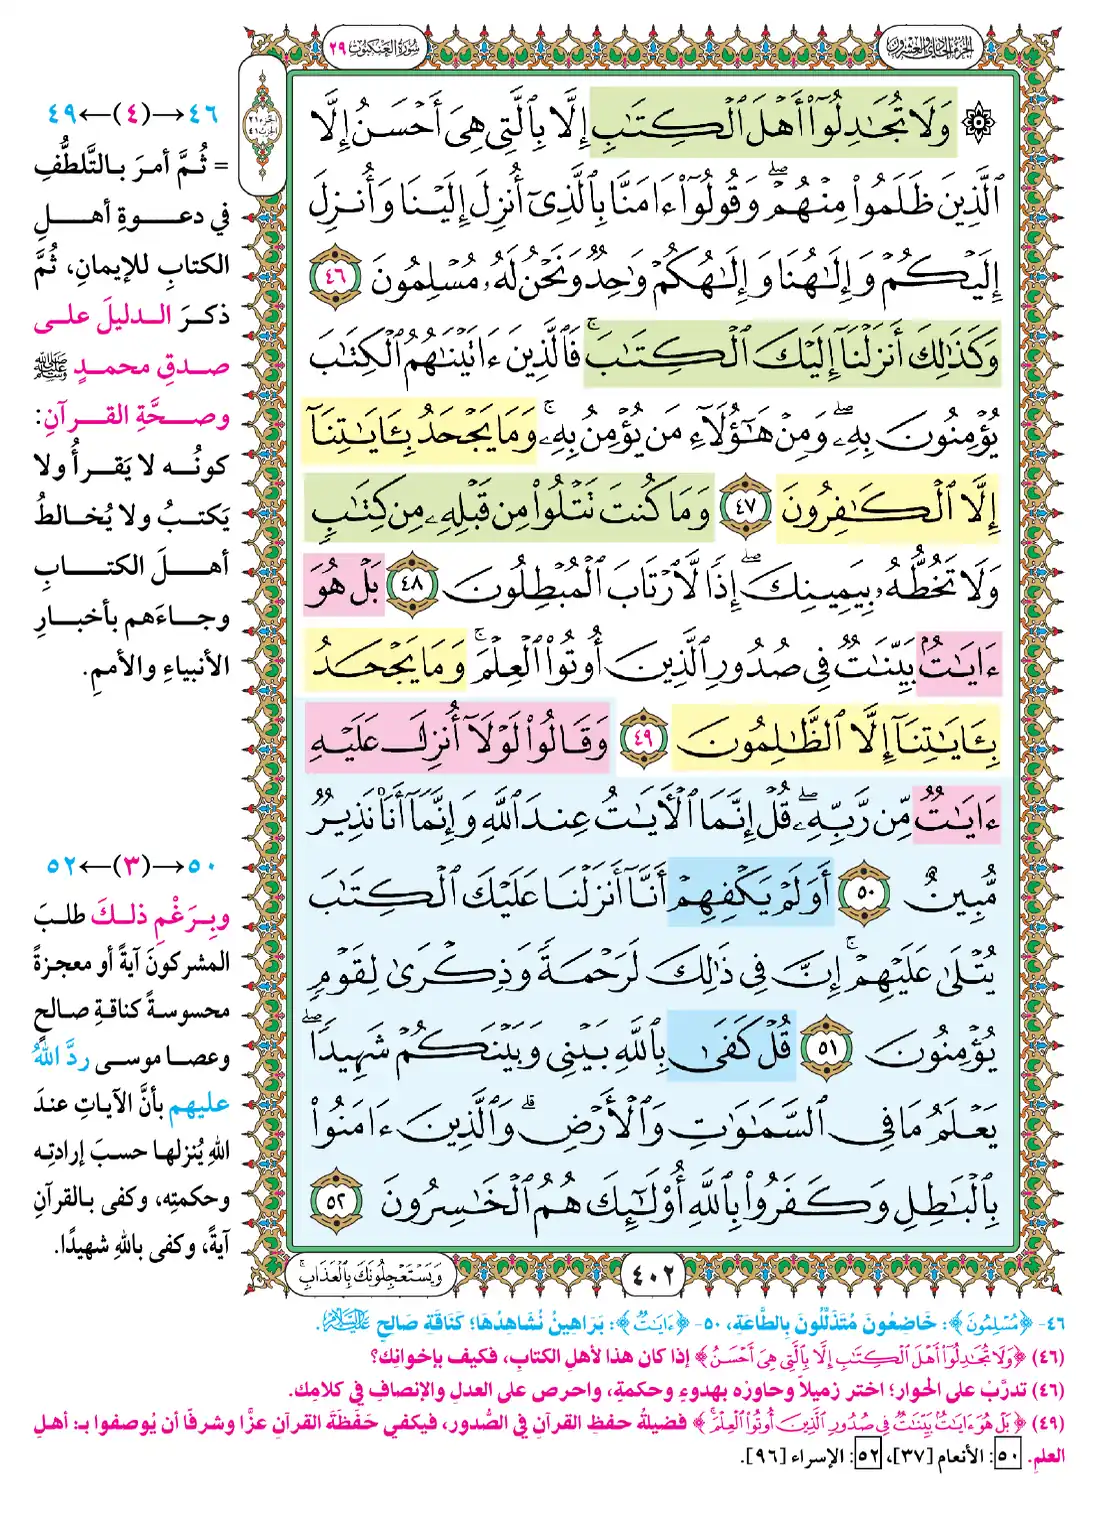 الجزء الحادي والعشرون
سورة العنكبوت ٢٩
الجزء ٢١
الحزب ٤١
۞ وَلَا تُجَٰدِلُوٓا۟ أَهْلَ ٱلْكِتَٰبِ إِلَّا بِٱلَّتِى هِىَ أَحْسَنُ إِلَّا
ٱلَّذِينَ ظَلَمُوا۟ مِنْهُمْ ۖ وَقُولُوٓا۟ ءَامَنَّا بِٱلَّذِىٓ أُنزِلَ إِلَيْنَا وَأُنزِلَ
إِلَيْكُمْ وَإِلَٰهُنَا وَإِلَٰهُكُمْ وَٰحِدٌ وَنَحْنُ لَهُۥ مُسْلِمُونَ ٤٦
وَكَذَٰلِكَ أَنزَلْنَآ إِلَيْكَ ٱلْكِتَٰبَ ۚ فَٱلَّذِينَ ءَاتَيْنَٰهُمُ ٱلْكِتَٰبَ
يُؤْمِنُونَ بِهِۦ ۖ وَمِنْ هَٰٓؤُلَآءِ مَن يُؤْمِنُ بِهِۦ ۚ وَمَا يَجْحَدُ بِـَٔايَٰتِنَآ
إِلَّا ٱلْكَٰفِرُونَ ٤٧ وَمَا كُنتَ تَتْلُوا۟ مِن قَبْلِهِۦ مِن كِتَٰبٍ
وَلَا تَخُطُّهُۥ بِيَمِينِكَ ۖ إِذًا لَّٱرْتَابَ ٱلْمُبْطِلُونَ ٤٨ بَلْ هُوَ
ءَايَٰتٌۢ بَيِّنَٰتٌ فِى صُدُورِ ٱلَّذِينَ أُوتُوا۟ ٱلْعِلْمَ ۚ وَمَا يَجْحَدُ
بِـَٔايَٰتِنَآ إِلَّا ٱلظَّٰلِمُونَ ٤٩ وَقَالُوا۟ لَوْلَآ أُنزِلَ عَلَيْهِ
ءَايَٰتٌ مِّن رَّبِّهِۦ ۖ قُلْ إِنَّمَا ٱلْـَٔايَٰتُ عِندَ ٱللَّهِ وَإِنَّمَآ أَنَا۠ نَذِيرٌ
مُّبِينٌ ٥٠ أَوَلَمْ يَكْفِهِمْ أَنَّآ أَنزَلْنَا عَلَيْكَ ٱلْكِتَٰبَ
يُتْلَىٰ عَلَيْهِمْ ۚ إِنَّ فِى ذَٰلِكَ لَرَحْمَةً وَذِكْرَىٰ لِقَوْمٍ
يُؤْمِنُونَ ٥١ قُلْ كَفَىٰ بِٱللَّهِ بَيْنِى وَبَيْنَكُمْ شَهِيدًا ۖ
يَعْلَمُ مَا فِى ٱلسَّمَٰوَٰتِ وَٱلْأَرْضِ ۗ وَٱلَّذِينَ ءَامَنُوا۟
بِٱلْبَٰطِلِ وَكَفَرُوا۟ بِٱللَّهِ أُو۟لَٰٓئِكَ هُمُ ٱلْخَٰسِرُونَ ٥٢
٤٠٢
وَيَسْتَعْجِلُونَكَ بِٱلْعَذَابِ ۚ
٤٦→(٤)←٤٩
= ثُمَّ أمرَ بالتَّلطُّفِ
في دعوةِ أهلِ
الكتابِ للإيمانِ، ثُمَّ
ذكرَ الدليلَ على
صدقِ محمدٍ ﷺ
وصحَّةِ القرآنِ:
كونُه لا يَقرأُ ولا
يَكتبُ ولا يُخالطُ
أهلَ الكتابِ
وجاءَهم بأخبارِ
الأنبياءِ والأممِ.
٥٠→(٣)←٥٢
وبِرَغْمِ ذلكَ طلبَ
المشركونَ آيةً أو معجزةً
محسوسةً كناقةِ صالحٍ
وعصا موسى ردَّ اللهُ
عليهم بأنَّ الآياتِ عندَ
اللهِ يُنزلها حسبَ إرادتِه
وحكمتِه، وكفى بالقرآنِ
آيةً، وكفى باللهِ شهيدًا.
٤٦- ﴿مُسْلِمُونَ﴾: خَاضِعُونَ مُتَذَلِّلُونَ بِالطَّاعَةِ، ٥٠- ﴿ءَايَٰتٌ﴾: بَرَاهِينُ نُشَاهِدُهَا؛ كَنَاقَةِ صَالِحٍ عَلَيْهِ السَّلَام.
(٤٦) ﴿وَلَا تُجَٰدِلُوٓا۟ أَهْلَ ٱلْكِتَٰبِ إِلَّا بِٱلَّتِى هِىَ أَحْسَنُ﴾ إذا كان هذا لأهلِ الكتابِ، فكيف بإخوانِك؟
(٤٦) تدرَّبْ على الحوار؛ اختر زميلاً وحاورْه بهدوءٍ وحكمةٍ، واحرص على العدلِ والإنصافِ في كلامِك.
(٤٩) ﴿بَلْ هُوَ ءَايَٰتٌۢ بَيِّنَٰتٌ فِى صُدُورِ ٱلَّذِينَ أُوتُوا۟ ٱلْعِلْمَ ۚ﴾ فضيلةُ حفظِ القرآنِ في الصُّدور، فيكفي حَفَظَةَ القرآنِ عزًّا وشرفًا أن يُوصفوا بـ: أهلِ
العلم. ٥٠: الأنعام [٣٧]، ٥٢: الإسراء [٩٦].